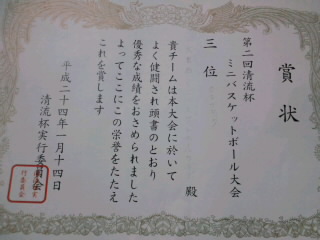 賞状
第二回清流杯
ミニバスケットボール大会
三位
殿
貴チームは本大会に於いて
よく健闘され頭書のとおり
優秀な成績をおさめられました
よってここにこの栄誉をたたえ
これを賞します
平成二十四年一月十四日
清流杯実行委員会